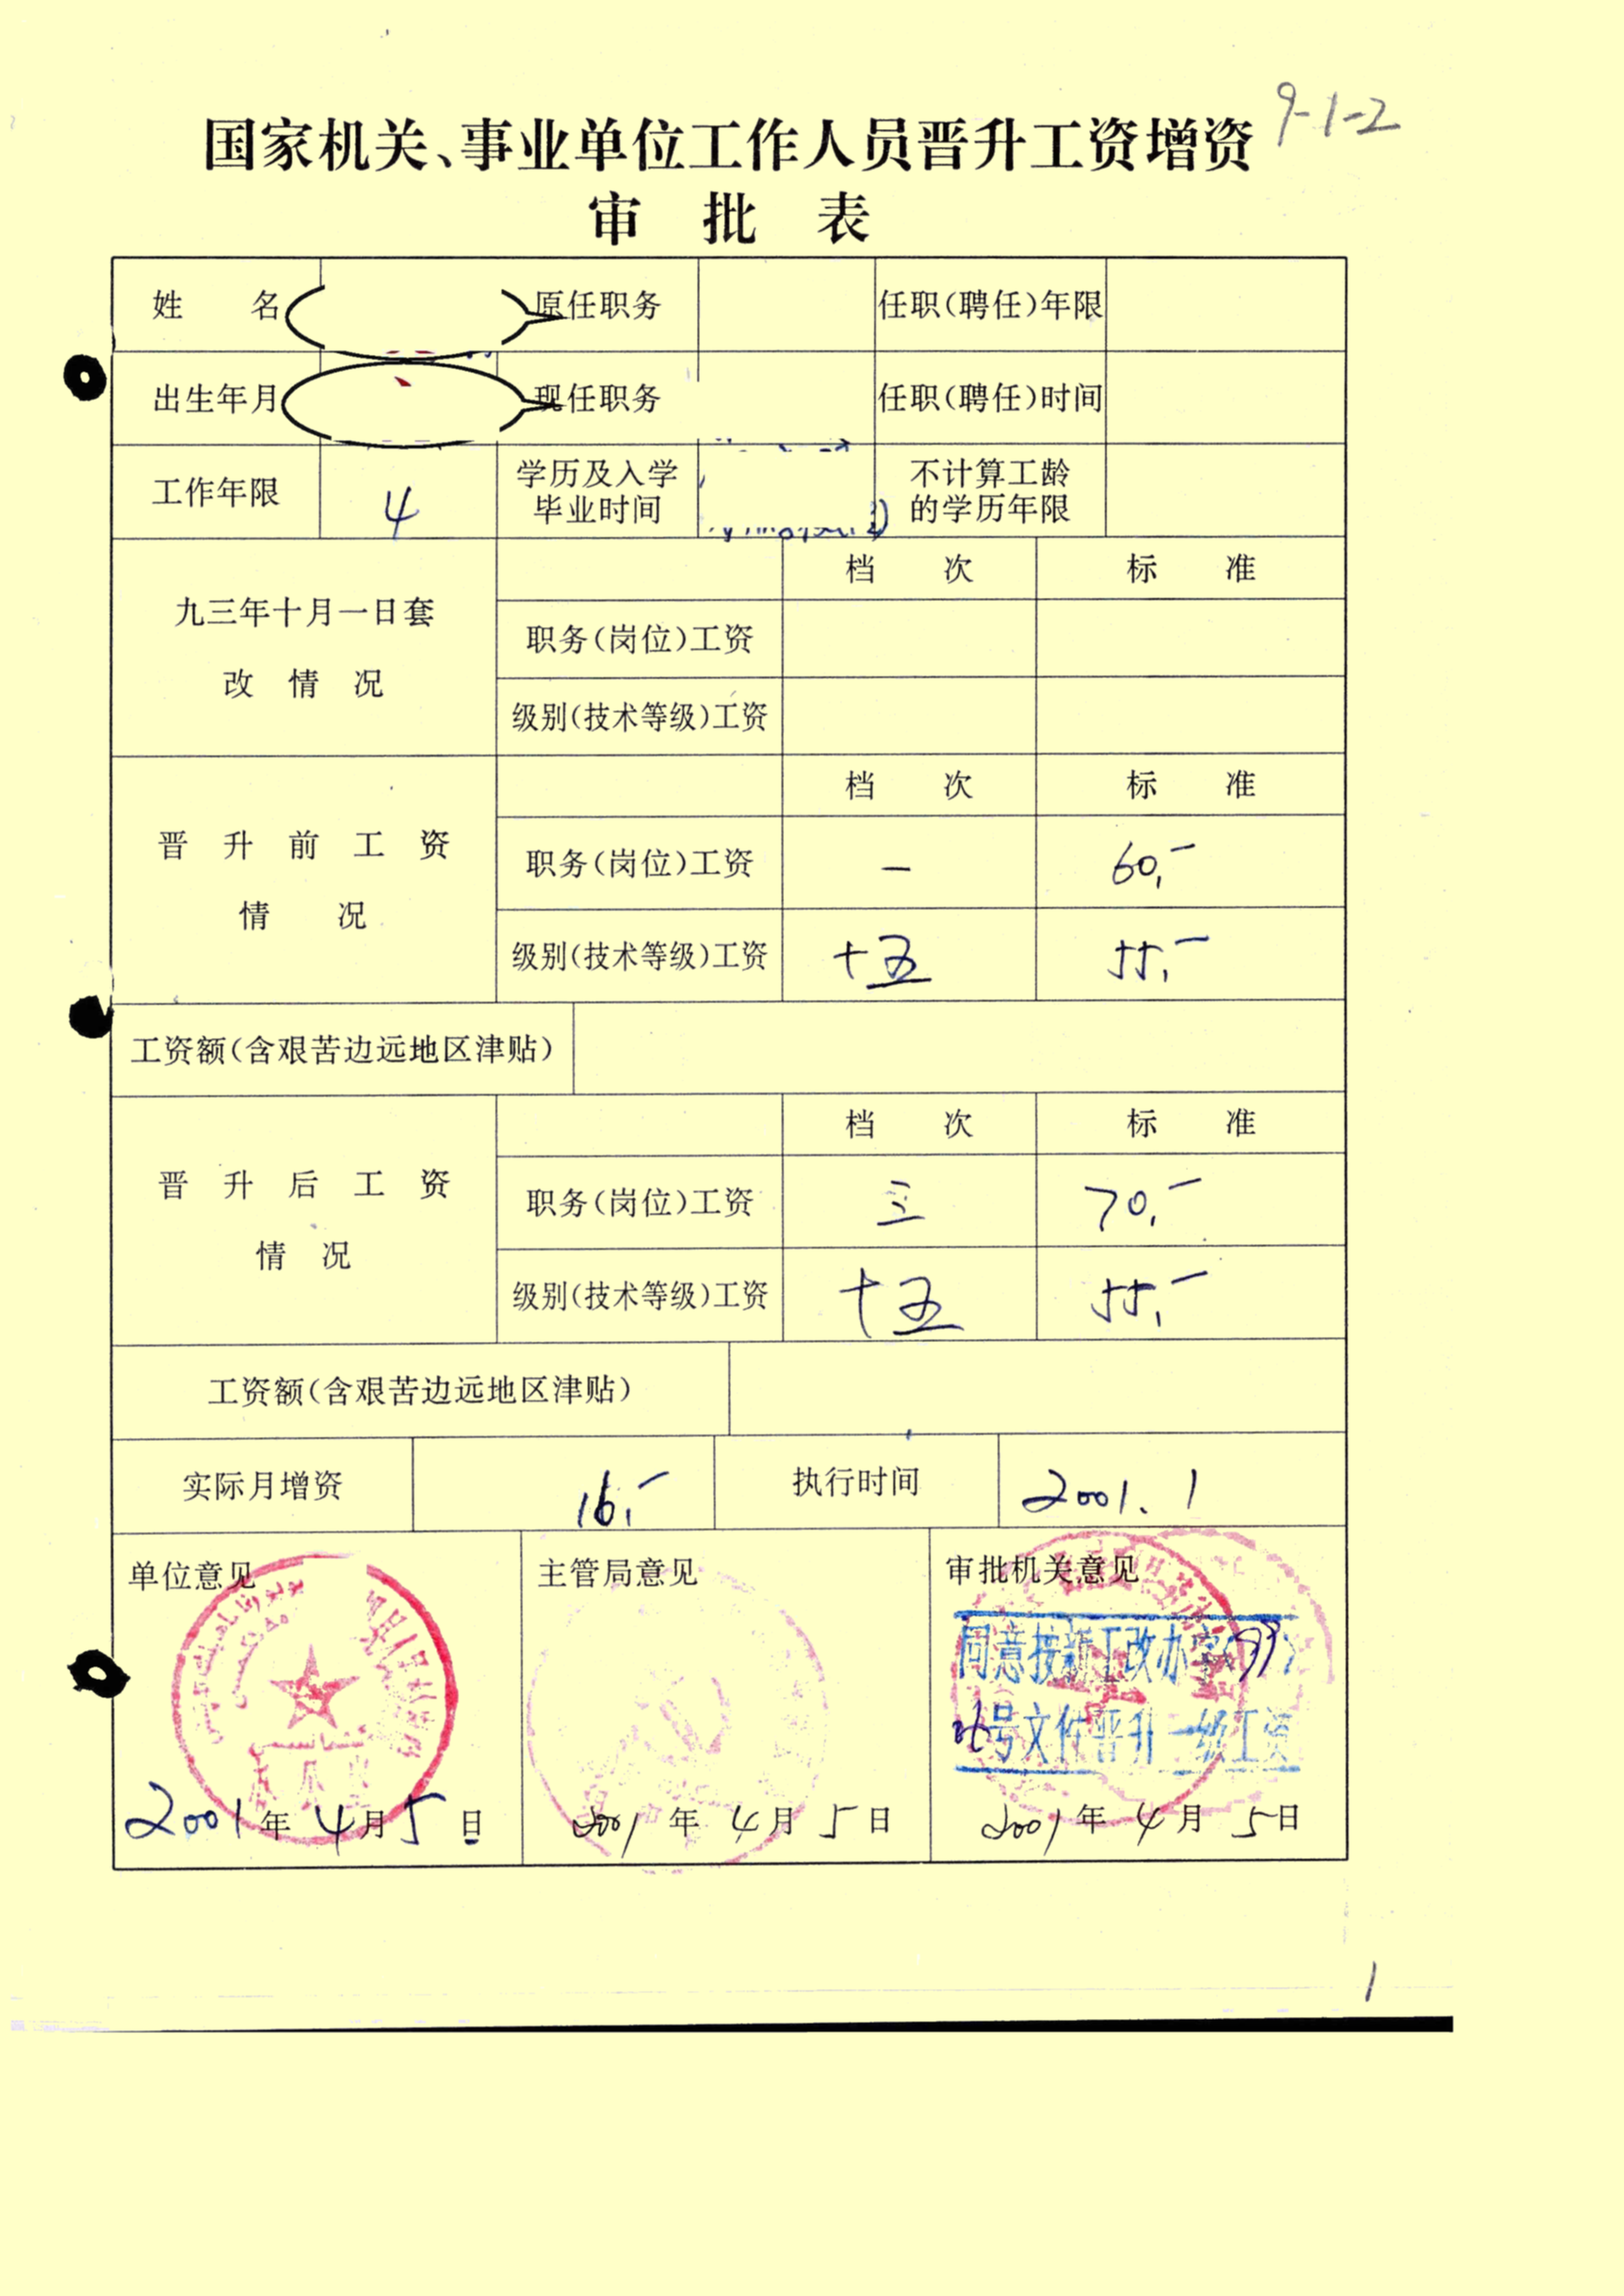 9-1-2
国家机关、事业单位工作人员晋升工资增资
审 批 表
姓 名 原任职务 任职(聘任)年限
出生年月 现任职务 任职(聘任)时间
工作年限 4 学历及入学毕业时间 不计算工龄的学历年限
九三年十月一日套改情况 档 次 标 准
职务(岗位)工资
级别(技术等级)工资
晋升前工资情况 档 次 标 准
职务(岗位)工资 一 60.-
级别(技术等级)工资 十五 55.-
工资额(含艰苦边远地区津贴)
晋升后工资情况 档 次 标 准
职务(岗位)工资 三 70.-
级别(技术等级)工资 十五 55.-
工资额(含艰苦边远地区津贴)
实际月增资 16.- 执行时间 2001.1
单位意见 主管局意见 审批机关意见
同意按新工改办字(99)
号文件晋升一级工资
2001年4月5日 2001年4月5日 2001年4月5日
1